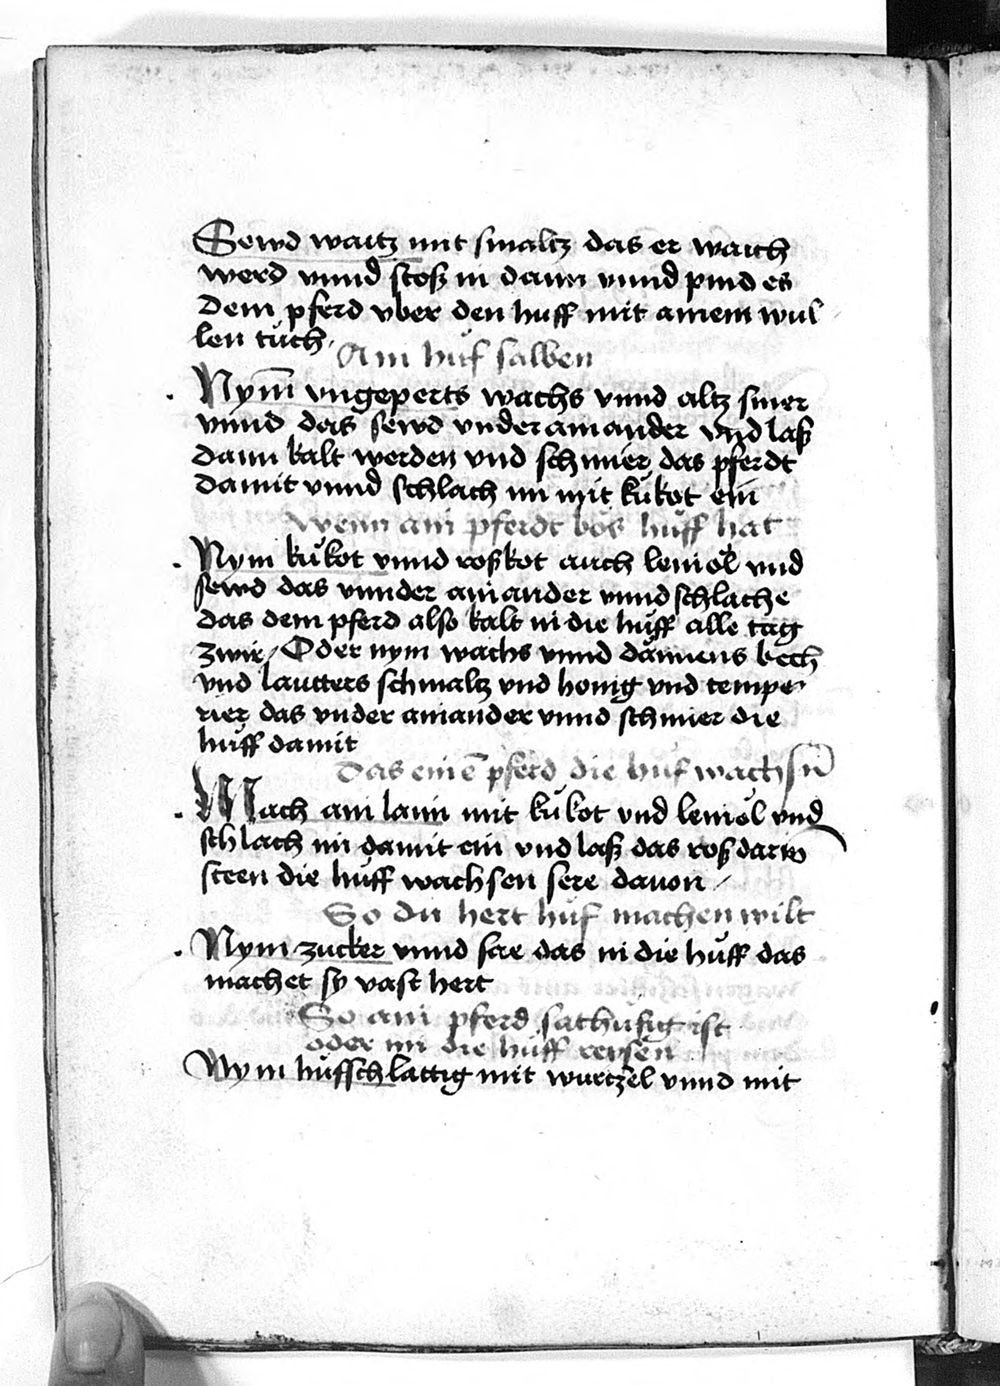 Sewd waitz mit smaltz das er waich
werd vnnd stosz in dann vnnd pind es
dem pferd vber den huff mit ainem wul
len tůch
Ain hůf salben
Nym̄ vngeperts wachs vnnd altz smer
vnnd das sewd vnder ainander vnd lasz
dann kalt werden vnd schmier das pferdt
damit vnnd schlach im mit kůkot ein
Wenn ain pferdt bös hůff hat
Nym kůkot vnnd roszkot auch leinöl vnd
sewd das vnnder ainander vnnd schlache
das dem pferd also kalt in die hůff alle tag
zwir / Oder nym wachs vnnd dännens bech
vnd lautters schmaltz vnd honig vnd tempe
rier das vnder ainander vnnd schmier die
hůff damit
Das einē pferd die hůf wachsn̄
Mach ain laim mit kůkot vnd leinöl vnd
schlach im damit ein vnd lasz das rosz darin
steen die hůff wachsen sere dauon /
So du hert hůf machen wilt
Nym zucker vnnd säe das in die hůff das
machet sy vast hert
So ain pferd sathůfig ist
oder im die hůff reysen
Nym hůffschlattig mit wurtzel vnnd mit